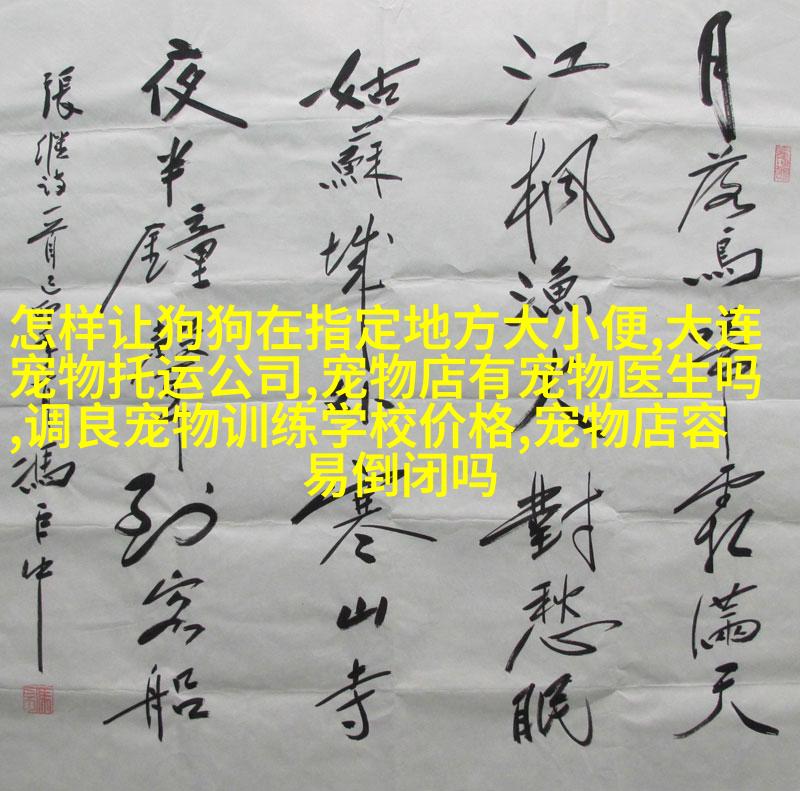 月落烏啼霜滿天
江楓漁火對愁眠
姑蘇城外寒山寺
夜半鐘聲到客船
張繼詩一首
怎样让狗狗在指定地方大小便,大连
宠物托运公司,宠物店有宠物医生吗
,调良宠物训练学校价格,宠物店容
易倒闭吗